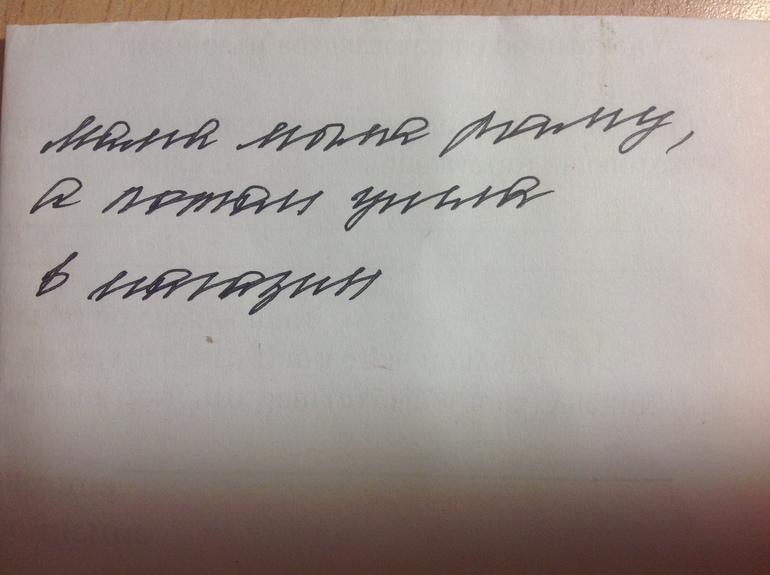 мама мыла раму,
а потом ушла
в магазин